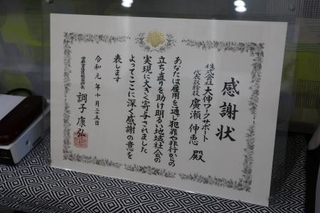 感謝状
株式会社大伸ワークサポート
代表取締役 廣瀬伸恵 殿
あなたは雇用を通じ犯罪や非行からの
立ち直りを助け明るい地域社会の
実現に大きく寄与されました
よってここに深く感謝の意を
表します
令和元年十月二十五日
調子康弘